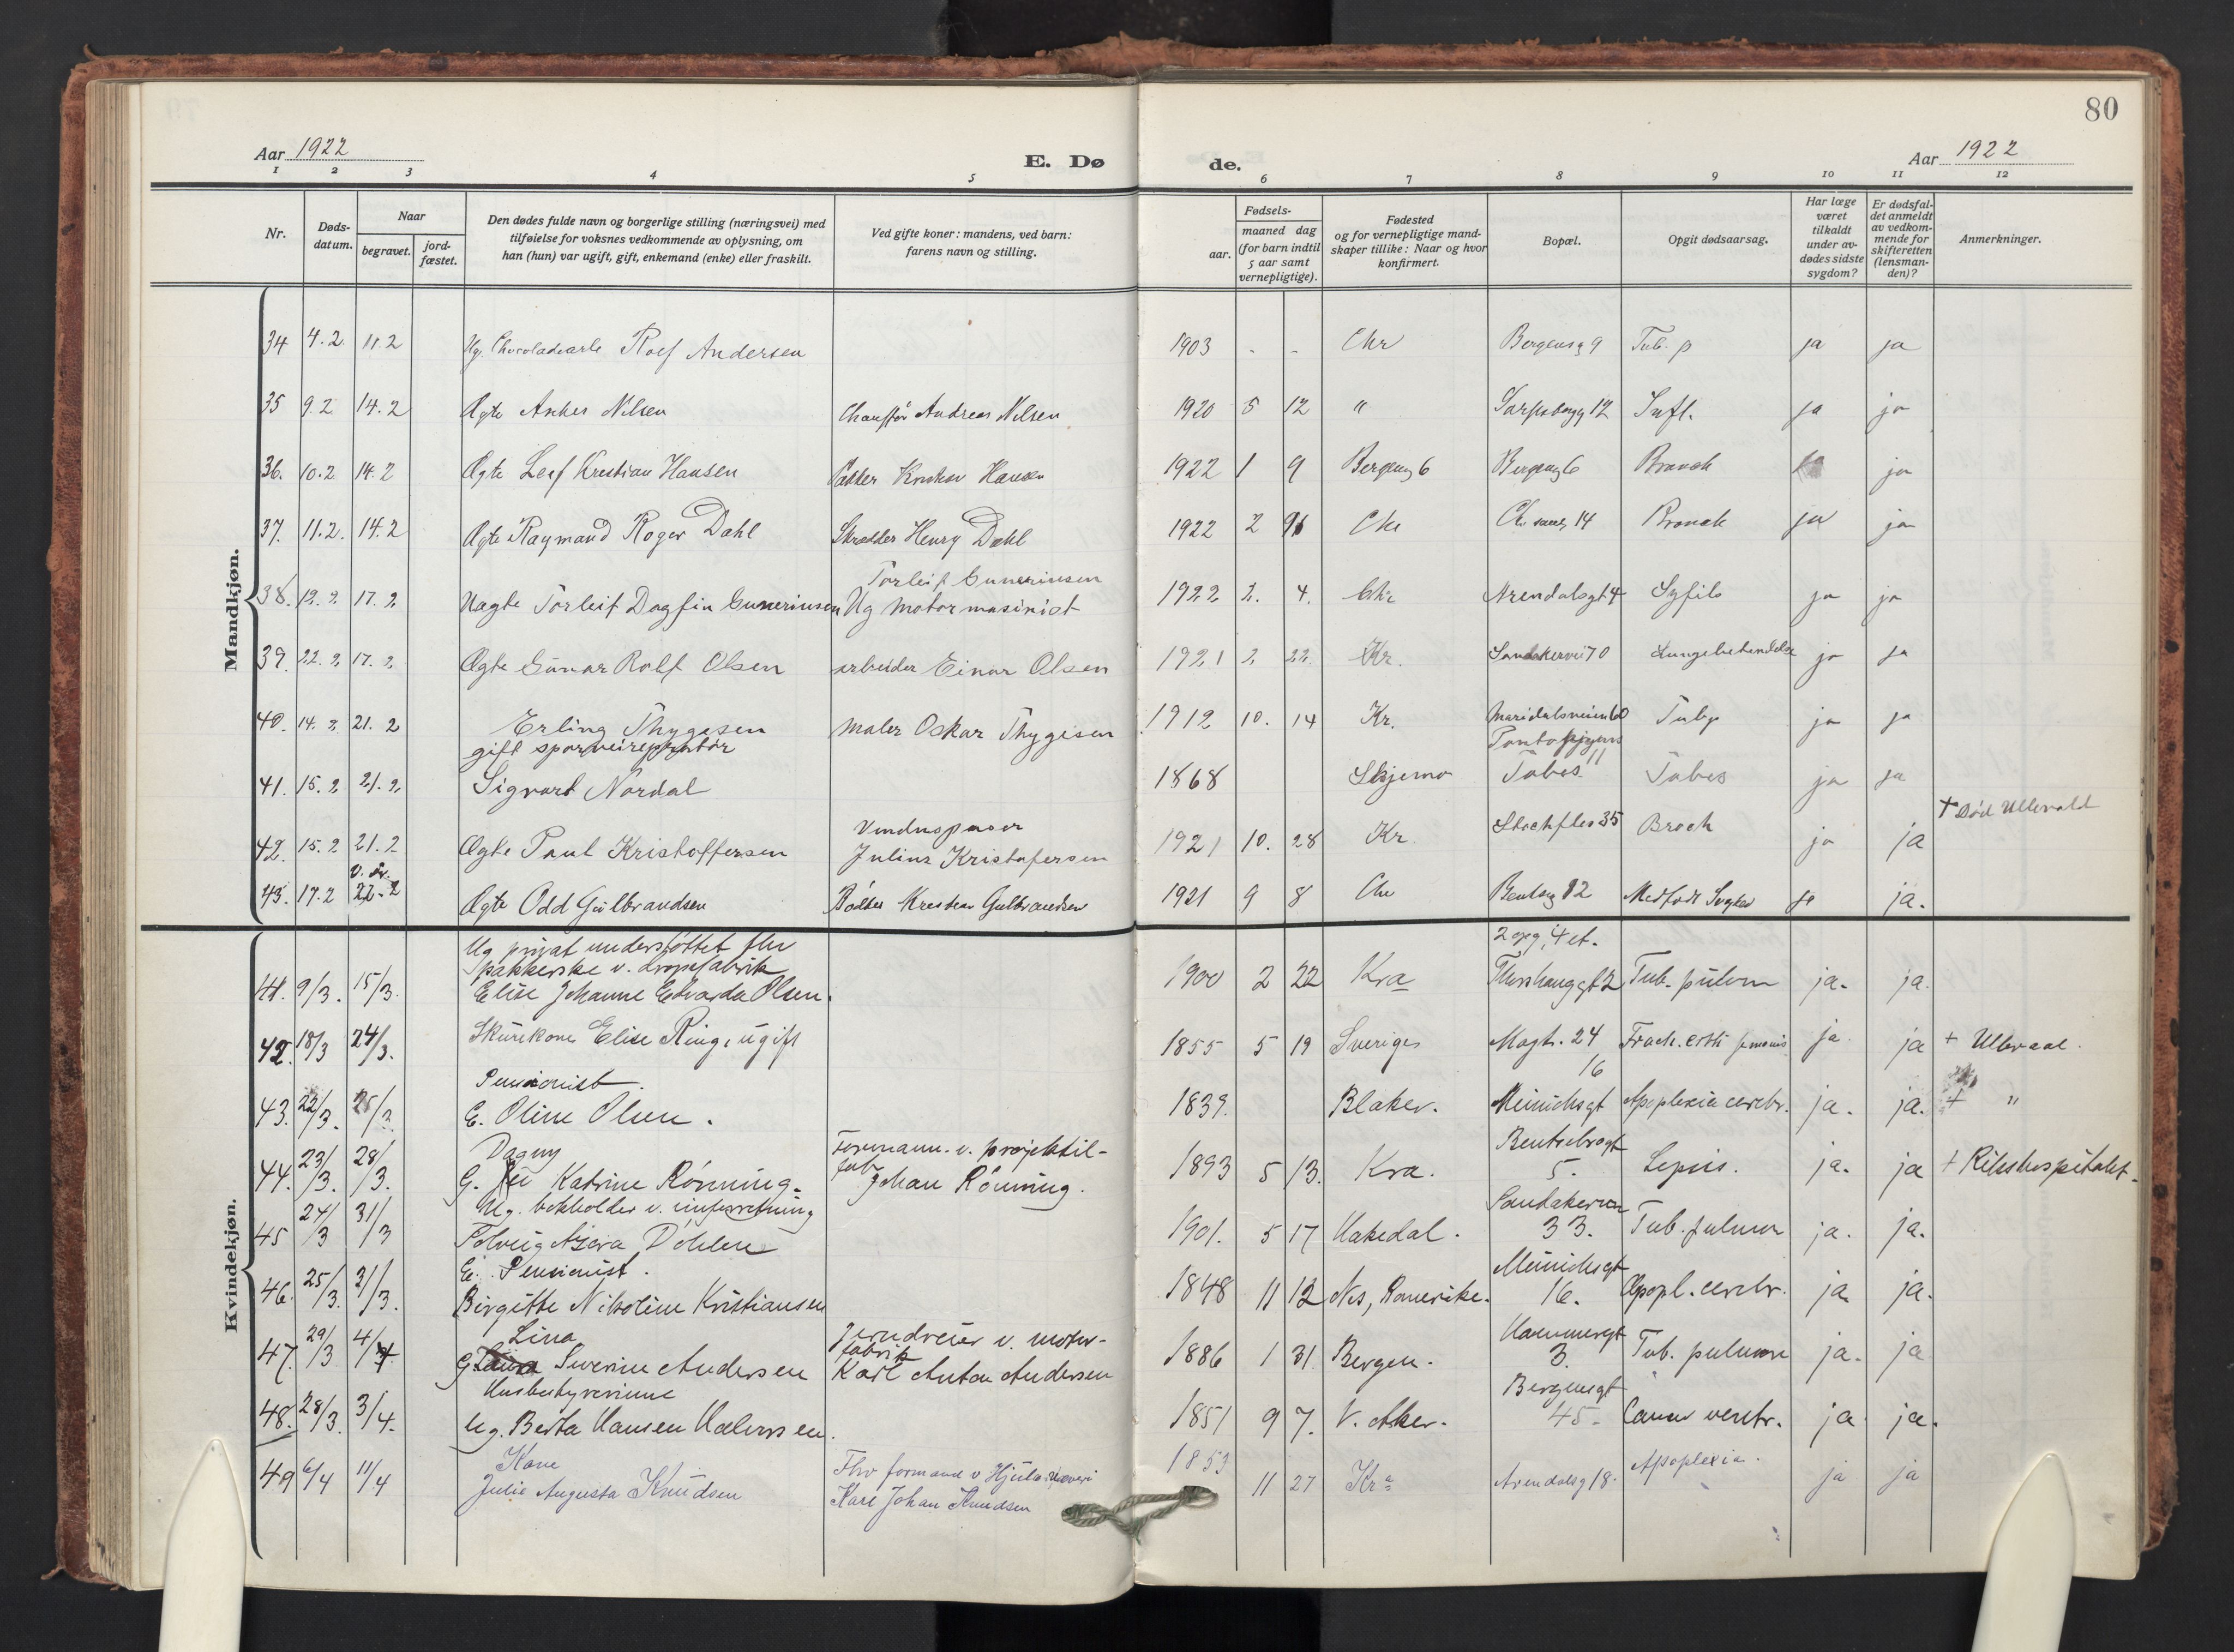 80
Aar 1922
E. Dø
de.
Aar 1922
1 2 3 4 5 6 7 8 9 10 11 12
Nr.
Døds-
datum.
Naar
begravet.
jord-
fæstet.
Den dødes fulde navn og borgerlige stilling (næringsvei) med
tilføielse for voksnes vedkommende av oplysning, om
han (hun) var ugift, gift, enkemand (enke) eller fraskilt.
Ved gifte koner: mandens, ved barn:
farens navn og stilling.
aar.
Fødsels-
maaned dag
(for barn indtil
5 aar samt
vernepligtige).
Fødested
og for vernepligtige mand-
skaper tillike: Naar og hvor
konfirmert.
Bopæl.
Opgit dødsaarsag.
Har læge
været
tilkaldt
under av-
dødes sidste
sygdom?
Er dødsfal-
det anmeldt
av vedkom-
mende for
skifteretten
(lensman-
den)?
Anmerkninger.
Mandkjøn.
34 4.2. 11.2 Ug. Rolf Andersen 1903 - - Chr Bergensg 9 Tub. p ja ja
35 9.2 14.2 Ægte Nilsen Chauffør Andreas Nilsen 1920 5 12 " Sarpsborgg 12 Infl. ja ja
36. 10.2 14.2 Ægte Leif Kristian Hansen Hansen 1922 1 9 Bergensg 6 Bergensg 6 Bronch ja
37. 11.2. 14.2 Ægte Raymand Roger Dahl Skrædder Henry Dahl 1922 2 Chr 14 Bronch ja ja
Torleif Guneriusen
38. 12.2 17.2 Uægte Torleif Dagfin Guneriusen Ug motormasinist 1922 2. 4. Chr Arendalsgt 4 Syfilis ja ja
39. 22.2 17.2 Ægte Gunar Rolf Olsen arbeider Einar Olsen 1921 2 22 Kr. Sandakervei 70 Lungebetendelse ja ja
40. 14.2 21.2 Erling Thygesen maler Oskar Thygesen 1912 10. 14 Kr. Maridalsveien 60 Tubp ja ja
gift sporveireparatør
11
41. 15.2 21.2 Sigvart Nordal 1868 Tabes ja ja
† Død Ullevold
42. 15.2 21.2 Ægte Paul Kristoffersen Julius Kristofersen 1921 10. 28 Kr 35 Bronch ja ja
43. 17.2 22.2 Ægte Odd Gulbrandsen Kristian Gulbrandsen 1921 9 8 Chr Bentseg 12 Medfødt ja ja.
Kvindekjøn.
Ug privat understøttet fhv
2 opg, 4 et.
pakkerske v. dropsfabrik
41. 9/3. 15/3. Elise Johanne Edvarda Olsen. 1900 2 22 Kra Thorshauggt 2 Tub. pulom ja. ja.
42. 18/3 24/3. Skurekone Elise Ring, ugift 1855 5 19 Sverige Magts. 24 Fract. ja. ja + Ullevaal.
Pensionist. 16
43. 22/3. 25/3 E. Oline Olsen. 1839. Blaker. Meinichsgt Apoplexia cerebr. ja. ja. + "
Dagny
Formann. v. projektil-
fabr. Bentsebrogt
44. 23/3. 28/3. G. Katrine Rönning. Johan Rönning. 1893 5 13. Kra. 5. Sepsis. ja. ja + Rikshospitalet.
Ug. bokholder v. Sandakerveien
45 24/3 31/3 Solveig Døhlen 1901. 5 17 Hakedal. 33. Tub. pulmon ja. ja.
E. Pensionist. Meinichsgt
46. 25/3. 31/3. Birgitte Nikoline Kristiansen 1848 11 12 Nes, Romerike. 16. Apopl. cerebr. ja. ja.
Lina
Jerndreier v. motor-
fabrik
Hammergt
47. 29/3. 4/4. G Severine Andersen Karl Anton Andersen 1886 1 31. Bergen. 3. Tub. pulmon ja. ja
Husbestyrerinne Bergensgt
48. 28/3. 3/4. Ug. Berta Hansen Halvorsen. 1851 9 7. V. Aker. 45. Cancer ventr. ja. ja.
Kone
Fhv formand v Hjula Væveri
49 6/4 11/4 Julie Augusta Knudsen Karl Johan Knudsen 1853 11 27 Kra Arendalsg 18. Apoplexia. ja ja